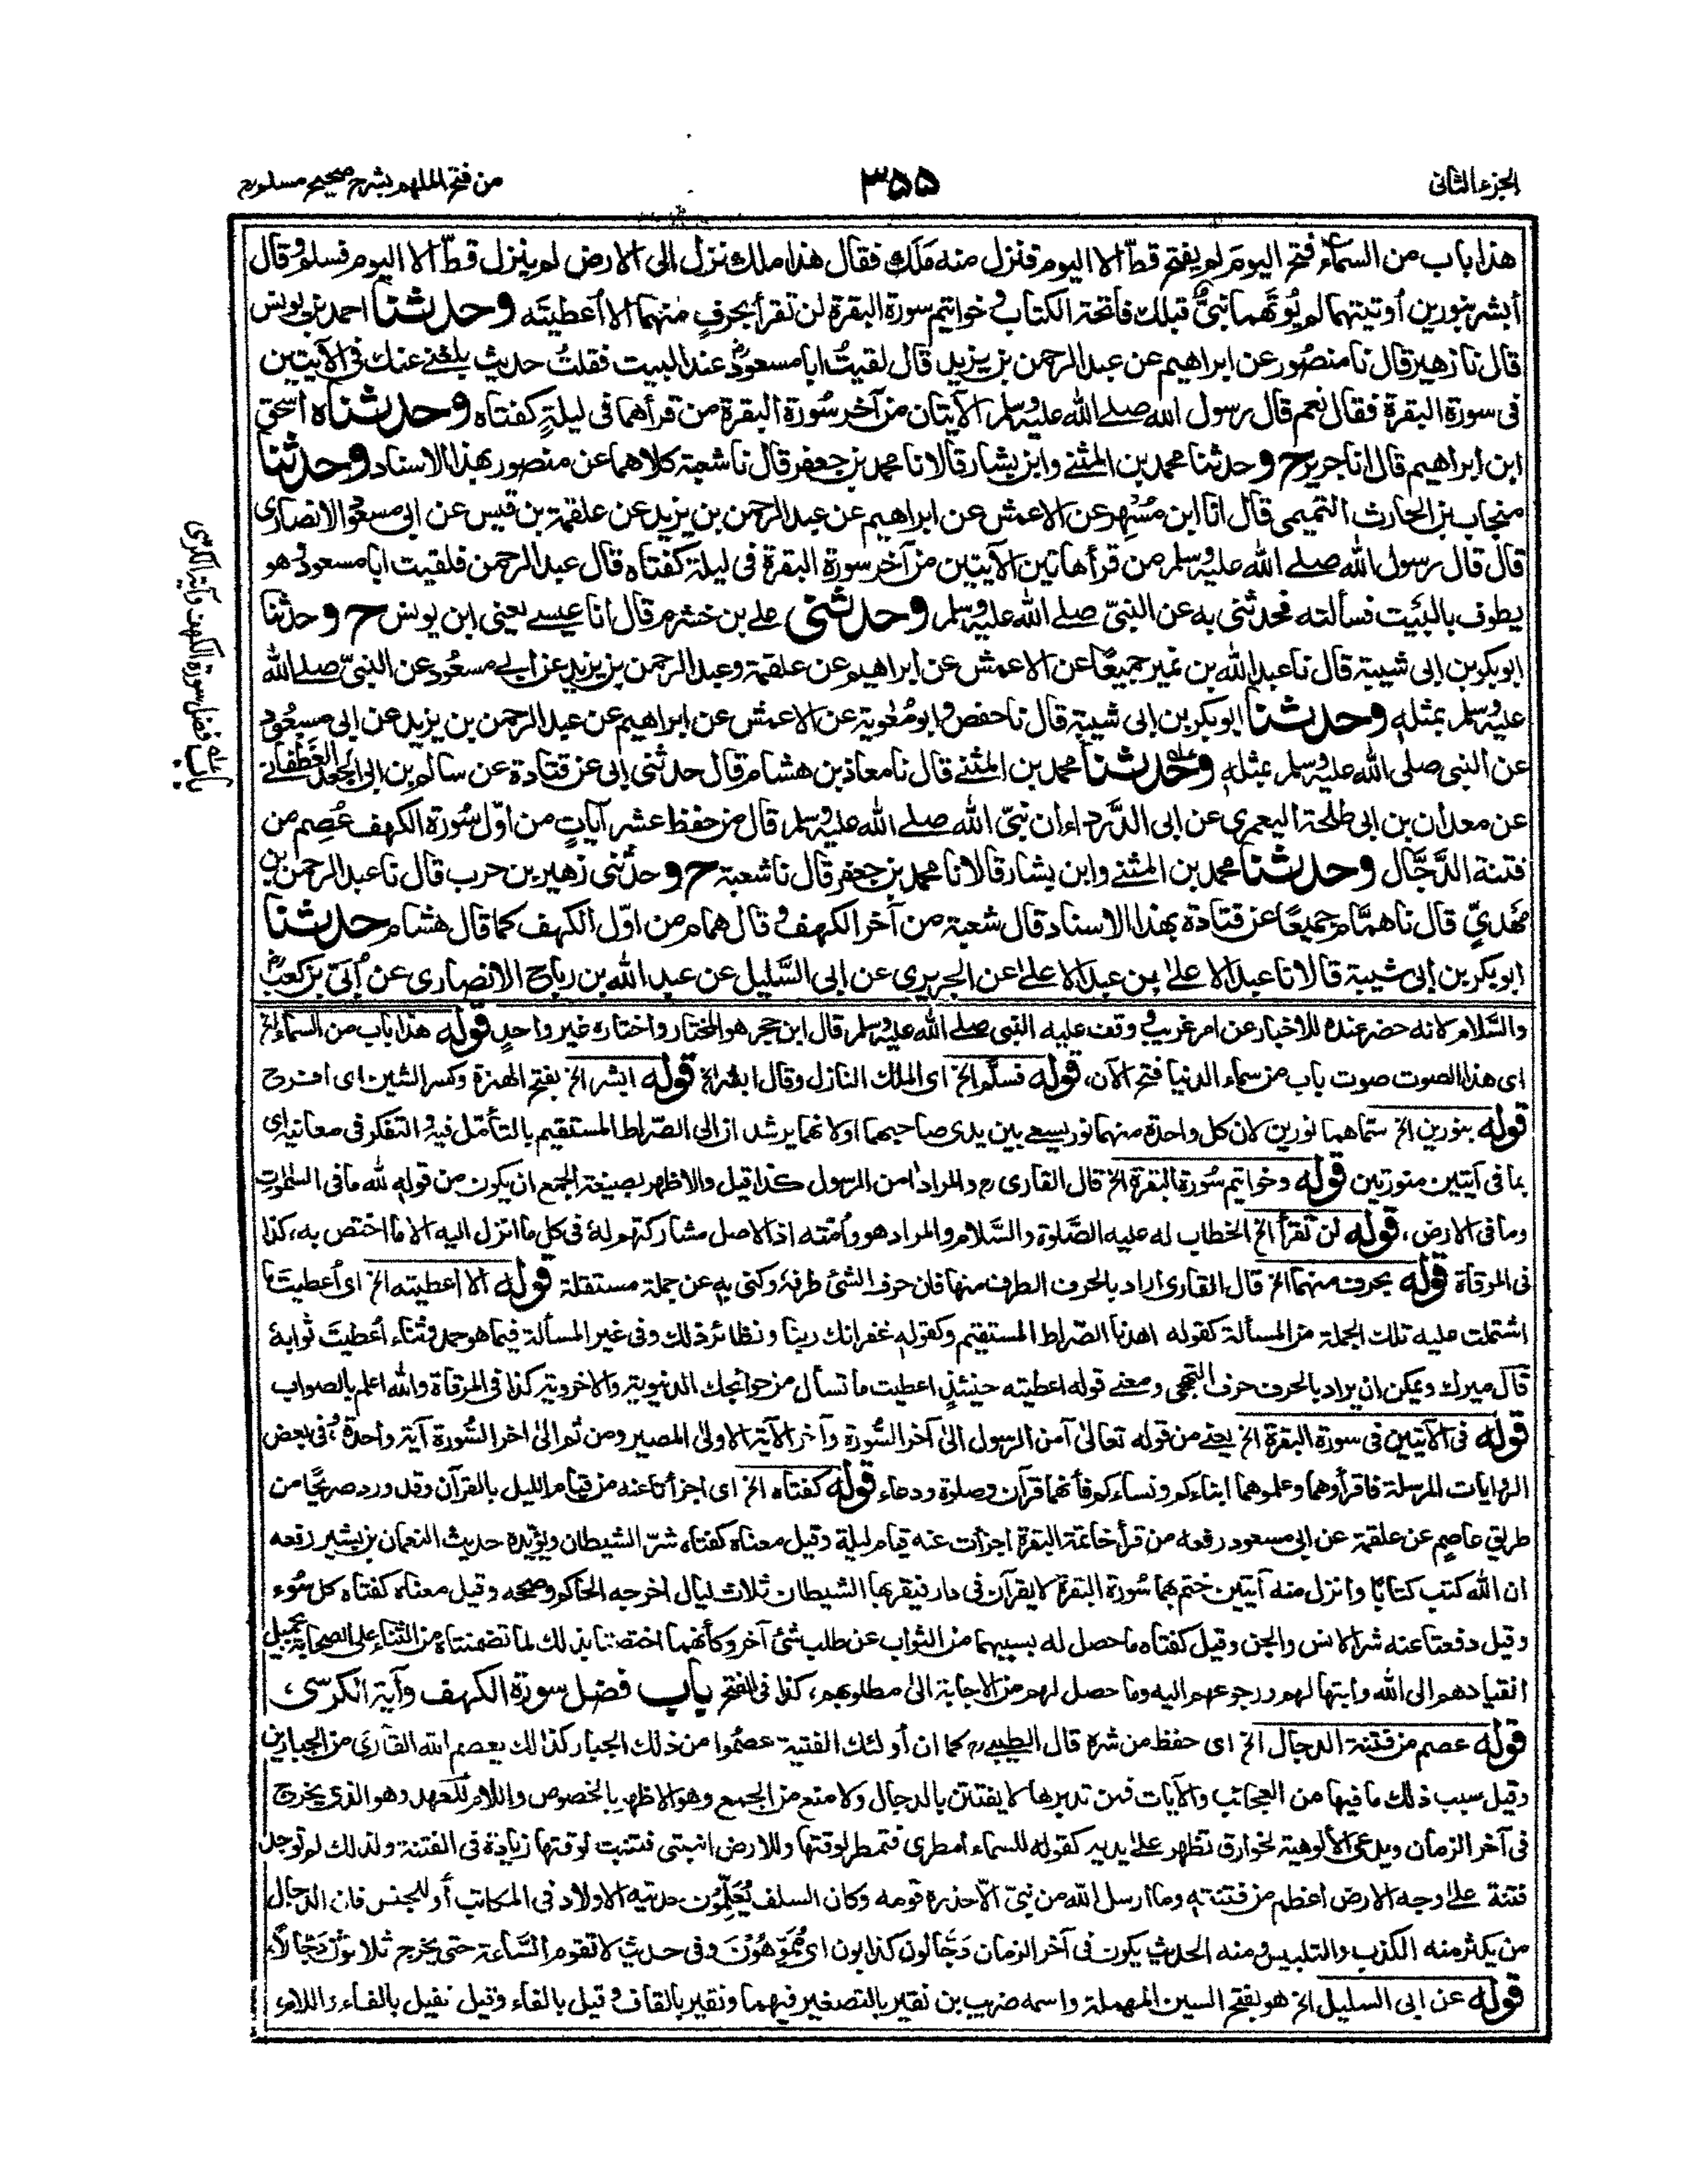 الجزء الثانی
۳۵۵
من فتح الملہم بشرح صحیح مسلم
هذا باب من السماء فتح اليوم لم يفتح قطّ الا اليوم فنزل منه مَلَك فقال هذا ملك نزل الى الارض لم ينزل قطّ الا اليوم فسلم وقال
أبشر بنورين أوتيتهما لم يُؤتَهما نبيٌّ قبلك فاتحة الكتاب وخواتيم سورة البقرة لن تقرأ بحرفٍ منهما الا أُعطيتَه وحدثنا احمد بن يونس
قال نا زهير قال نا منصور عن ابراهيم عن عبد الرحمن بن يزيد قال لقيتُ ابا مسعود عند البيت فقلتُ حديث بلغنى عنك فى الآيتين
فى سورة البقرة فقال نعم قال رسول الله صلى الله عليه وسلم الآيتان من آخر سُورة البقرة من قرأهما فى ليلةٍ كفتاه وحدثناه اسحق
ابن ابراهيم قال انا جرير ح وحدثنا محمد بن المثنى وابن بشار قالا نا محمد بن جعفر قال نا شعبة كلاهما عن منصور بهذا الاسناد وحدثنا
منجاب بن الحارث التميمى قال انا ابن مُسْهِر عن الاعمش عن ابراهيم عن عبد الرحمن بن يزيد عن علقمة بن قيس عن ابى مسعود الانصارى
قال قال رسول الله صلى الله عليه وسلم من قرأ هاتين الآيتين من آخر سورة البقرة فى ليلة كفتاه قال عبد الرحمن فلقيت ابا مسعود وهو
يطوف بالبَيت فسألته فحدثنى به عن النبىّ صلى الله عليه وسلم وحدثنى على بن خشرم قال انا عيسى يعنى ابن يونس ح وحدثنا
ابو بكر بن ابى شيبة قال نا عبد الله بن نمير جميعًا عن الاعمش عن ابراهيم عن علقمة وعبد الرحمن بن يزيد عن ابى مسعُود عن النبىّ صلى الله
عليه وسلم بمثله وحدثنا ابو بكر بن ابى شيبة قال نا حفص وابو مُعٰوية عن الاعمش عن ابراهيم عن عبد الرحمن بن يزيد عن ابى مسعُود
عن النبى صلى الله عليه وسلم بمثله وحدثنا محمد بن المثنى قال نا معاذ بن هشام قال حدثنى ابى عن قتادة عن سالم بن ابى الجعد الغَطَفانى
عن معدان بن ابى طلحة اليعمرى عن ابى الدَّرداء ان نبىّ الله صلى الله عليه وسلم قال من حفظ عشر آياتٍ من اوّل سُورة الكهف عُصِم من
فتنة الدَّجَّال وحدثنا محمد بن المثنى وابن بشار قالا نا محمد بن جعفر قال نا شعبة ح وحدثنى زهير بن حرب قال نا عبد الرحمن بن
مَهديّ قال نا همّام جميعًا عن قتادة بهذا الاسناد قال شعبة من آخر الكهف وقال همام من اوّل الكهف كما قال هشام حدثنا
ابو بكر بن ابى شيبة قالا نا عبد الاعلىٰ بن عبد الاعلىٰ عن الجريرى عن ابى السَّليل عن عبد الله بن رباح الانصارى عن أُبَىّ بن كعب
باب فضل سورة الكهف وآية الكرسى
والسَّلام لانه حضر عنده للاخبار عن امر غريب وقف عليه النبى صلى الله عليه وسلم قال ابن حجر هو المختار واختاره غير واحدٍ قوله هذا باب من السماء الخ
اى هذا الصوت صوت باب من سماء الدنيا فتح الآن، قوله فسلّم الخ اى الملك النازل وقال ابشر الخ قوله ابشر الخ بفتح الهمزة وكسر الشين اى افرح
قوله بنورين الخ سمّاهما نورين لان كل واحدة منهما نور يسعى بين يدى صاحبهما او لانهما يرشدان الى الصّراط المستقيم بالتأمّل فيه والتفكر فى معانيه اى
بما فى آيتين منورتين قوله وخواتيم سُورة البقرة الخ قال القارى رح والمراد اٰمن الرسول كذا قيل والاظهر بصيغة الجمع ان يكون من قوله لله ما فى السمٰوٰت
وما فى الارض، قوله لن تقرأ الخ الخطاب له عليه الصّلوة والسّلام والمراد هو وأمته اذ الاصل مشاركتهم له فى كل ما انزل اليه الا ما اختص به، كذا
فى المرقاة قوله بحرف منهما الخ قال القارى اراد بالحرف الطرف منها فان حرف الشئ طرفه وكنى به عن جملة مستقلة قوله الا اعطيته الخ اى أُعطيتَ ما
اشتملت عليه تلك الجملة من المسألة كقوله اهدنا الصّراط المستقيم وكقوله غفرانك ربنا ونظائر ذلك وفى غير المسألة فيما هو حمد وثناء أُعطيتَ ثوابه
قال ميرك ويمكن ان يراد بالحرف حرف التهجى ومعنى قوله اعطيته حينئذٍ اعطيت ما تسأل من حوائجك الدنيوية والاخروية كذا فى المرقاة والله اعلم بالصواب
قوله فى الآيتين فى سورة البقرة الخ يعنى من قوله تعالىٰ آمن الرسول الىٰ آخر السُّورة وآخر الآية الاولىٰ المصير ومن ثم الىٰ اخر السُّورة آية واحدة، وفى بعض
الروايات المرسلة فاقرأوهما وعلموهما ابناءكم ونساءكم فأنهما قرآن وصلوة ودعاء قوله كفتاه الخ اى اجزأتا عنه من قيام الليل بالقرآن وقد ورد صريحًا من
طريق عاصم عن علقمة عن ابى مسعود رفعه من قرأ خاتمة البقرة اجزأت عنه قيام ليلة وقيل معناه كفتاه شرّ الشيطان ويؤيده حديث النعمان بن بشير رفعه
ان الله كتب كتابًا وانزل منه آيتين ختم بهما سُورة البقرة لا يقرآن فى دار فيقربها الشيطان ثلاث ليال اخرجه الحاكم وصححه وقيل معناه كفتاه كل سُوء
وقيل دفعتا عنه شر الانس والجن وقيل كفتاه ما حصل له بسببهما من الثواب عن طلب شئ آخر وكأنهما اختصتا بذلك لما تضمنتاه من الثناء على الصحابة بجميل
انقيادهم الى الله وابتهالهم ورجوعهم اليه وما حصل لهم من الاجابة الىٰ مطلوبهم، كذا فى الفتح باب فضل سورة الكهف وآية الكرسى،
قوله عصم من فتنة الدجال الخ اى حفظ من شره قال الطيبى رح كما ان أولئك الفتية عصُموا من ذلك الجبار كذلك يعصم الله القارئ من الجبارين
وقيل سبب ذلك ما فيها من العجائب والآيات فمن تدبرها لا يفتتن بالدجال ولا منع من الجمع وهو الاظهر بالخصوص واللام للعهد وهو الذى يخرج
فى آخر الزمان ويدعى الألوهية لخوارق تظهر علىٰ يديه كقوله للسماء أمطرى فتمطر لوقتها وللارض انبتى فتنبت لوقتها زيادة فى الفتنة ولذلك لم توجد
فتنة علىٰ وجه الارض اعظم من فتنته وما ارسل الله من نبىّ الّا حذره قومه وكان السلف يُعلِّمُون حديثه الاولاد فى المكاتب أو للجنس فان الدجال
من يكثر منه الكذب والتلبيس ومنه الحديث يكون فى آخر الزمان دَجّالون كذابون اى مُمَوِّهُوْنَ وفى حديث لا تقوم السَّاعة حتى يخرج ثلاثون دجّالًا،
قوله عن ابى السليل الخ هو بفتح السين المهملة واسمه ضريب بن نقير بالتصغير فيهما ونقير بالقاف وقيل بالفاء وقيل نفيل بالفاء واللام،